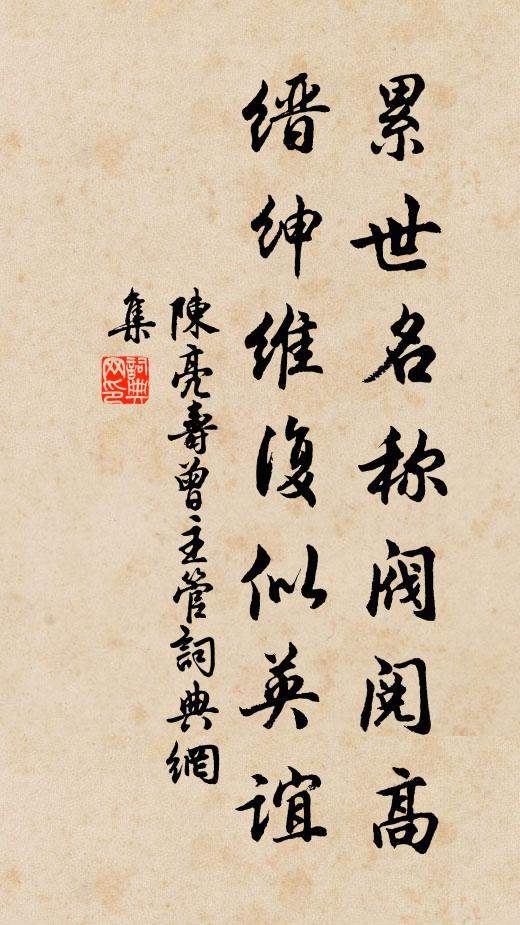 累世名称阀阅髙
缙绅维復似英谊
陳亮壽曾主管詞典網
集
詞典网印